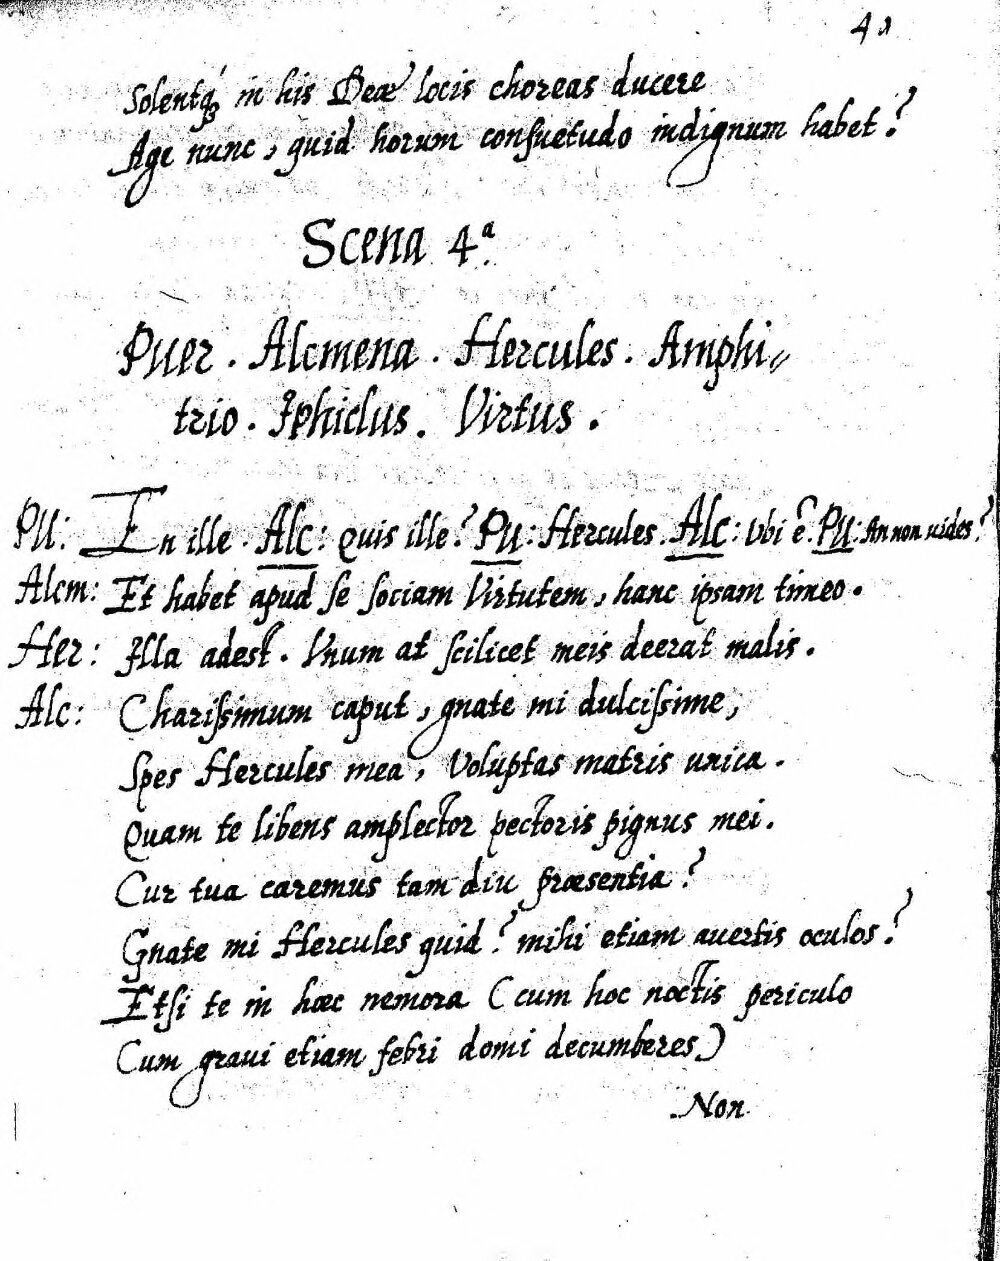 41
Solentq́ꝫ in his Deæ locis choreas ducere
Age nunc, quid horum consuetudo indignum habet?
Scena 4.ª
Puer. Alcmena. Hercules. Amphi=
trio. Iphiclus. Virtus.
Pu: En ille. Alc: Quis ille? Pu: Hercules. Alc: Vbi ẽ. Pu: An non uides?
Alcm: Et habet apud se sociam Virtutem, hanc ipsam timeo.
Her: Illa adest. Vnum at scilicet meis deerat malis.
Alc: Charissimum caput, gnate mi dulcissime,
Spes Hercules mea, Voluptas matris unica.
Quam te libens amplector pectoris pignus mei.
Cur tua caremus tam diu præsentia?
Gnate mi Hercules quid? mihi etiam auertis oculos?
Etsi te in hæc nemora (cum hoc noctis periculo
Cum graui etiam febri domi decumberes)
Non